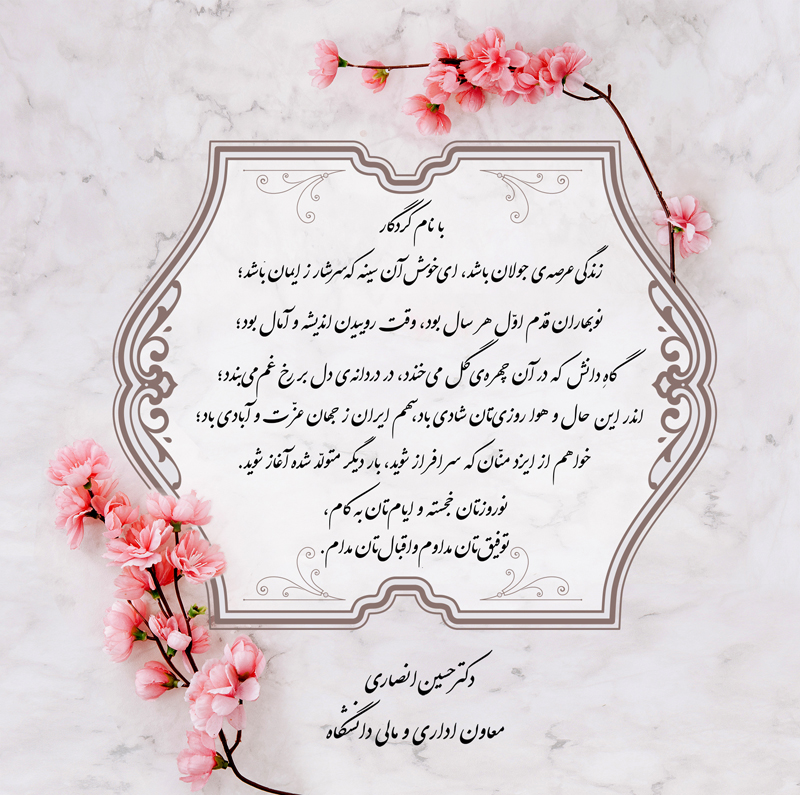 با نام کردگار
زندگی عرصه‌ی جولان باشد، ای خوش آن سینه که سرشار ز ایمان باشد؛
نوبهاران قدم اوّل هر سال بود، وقت روییدن اندیشه و آمال بود؛
گاهِ دانش که در آن چهره‌ی گل می‌خندد، در دردانه‌ی دل بر رخ غم می‌بندد؛
اندر این حال و هوا روزی‌تان شادی باد، سهم ایران ز جهان عزّت و آبادی باد؛
خواهم از ایزد منّان که سرافراز شوید، بار دیگر متولّد شده آغاز شوید.
نوروزتان خجسته و ایام‌تان به کام،
توفیق‌تان مداوم و اقبال‌تان مدام.
دکتر حسین انصاری
معاون اداری و مالی دانشگاه